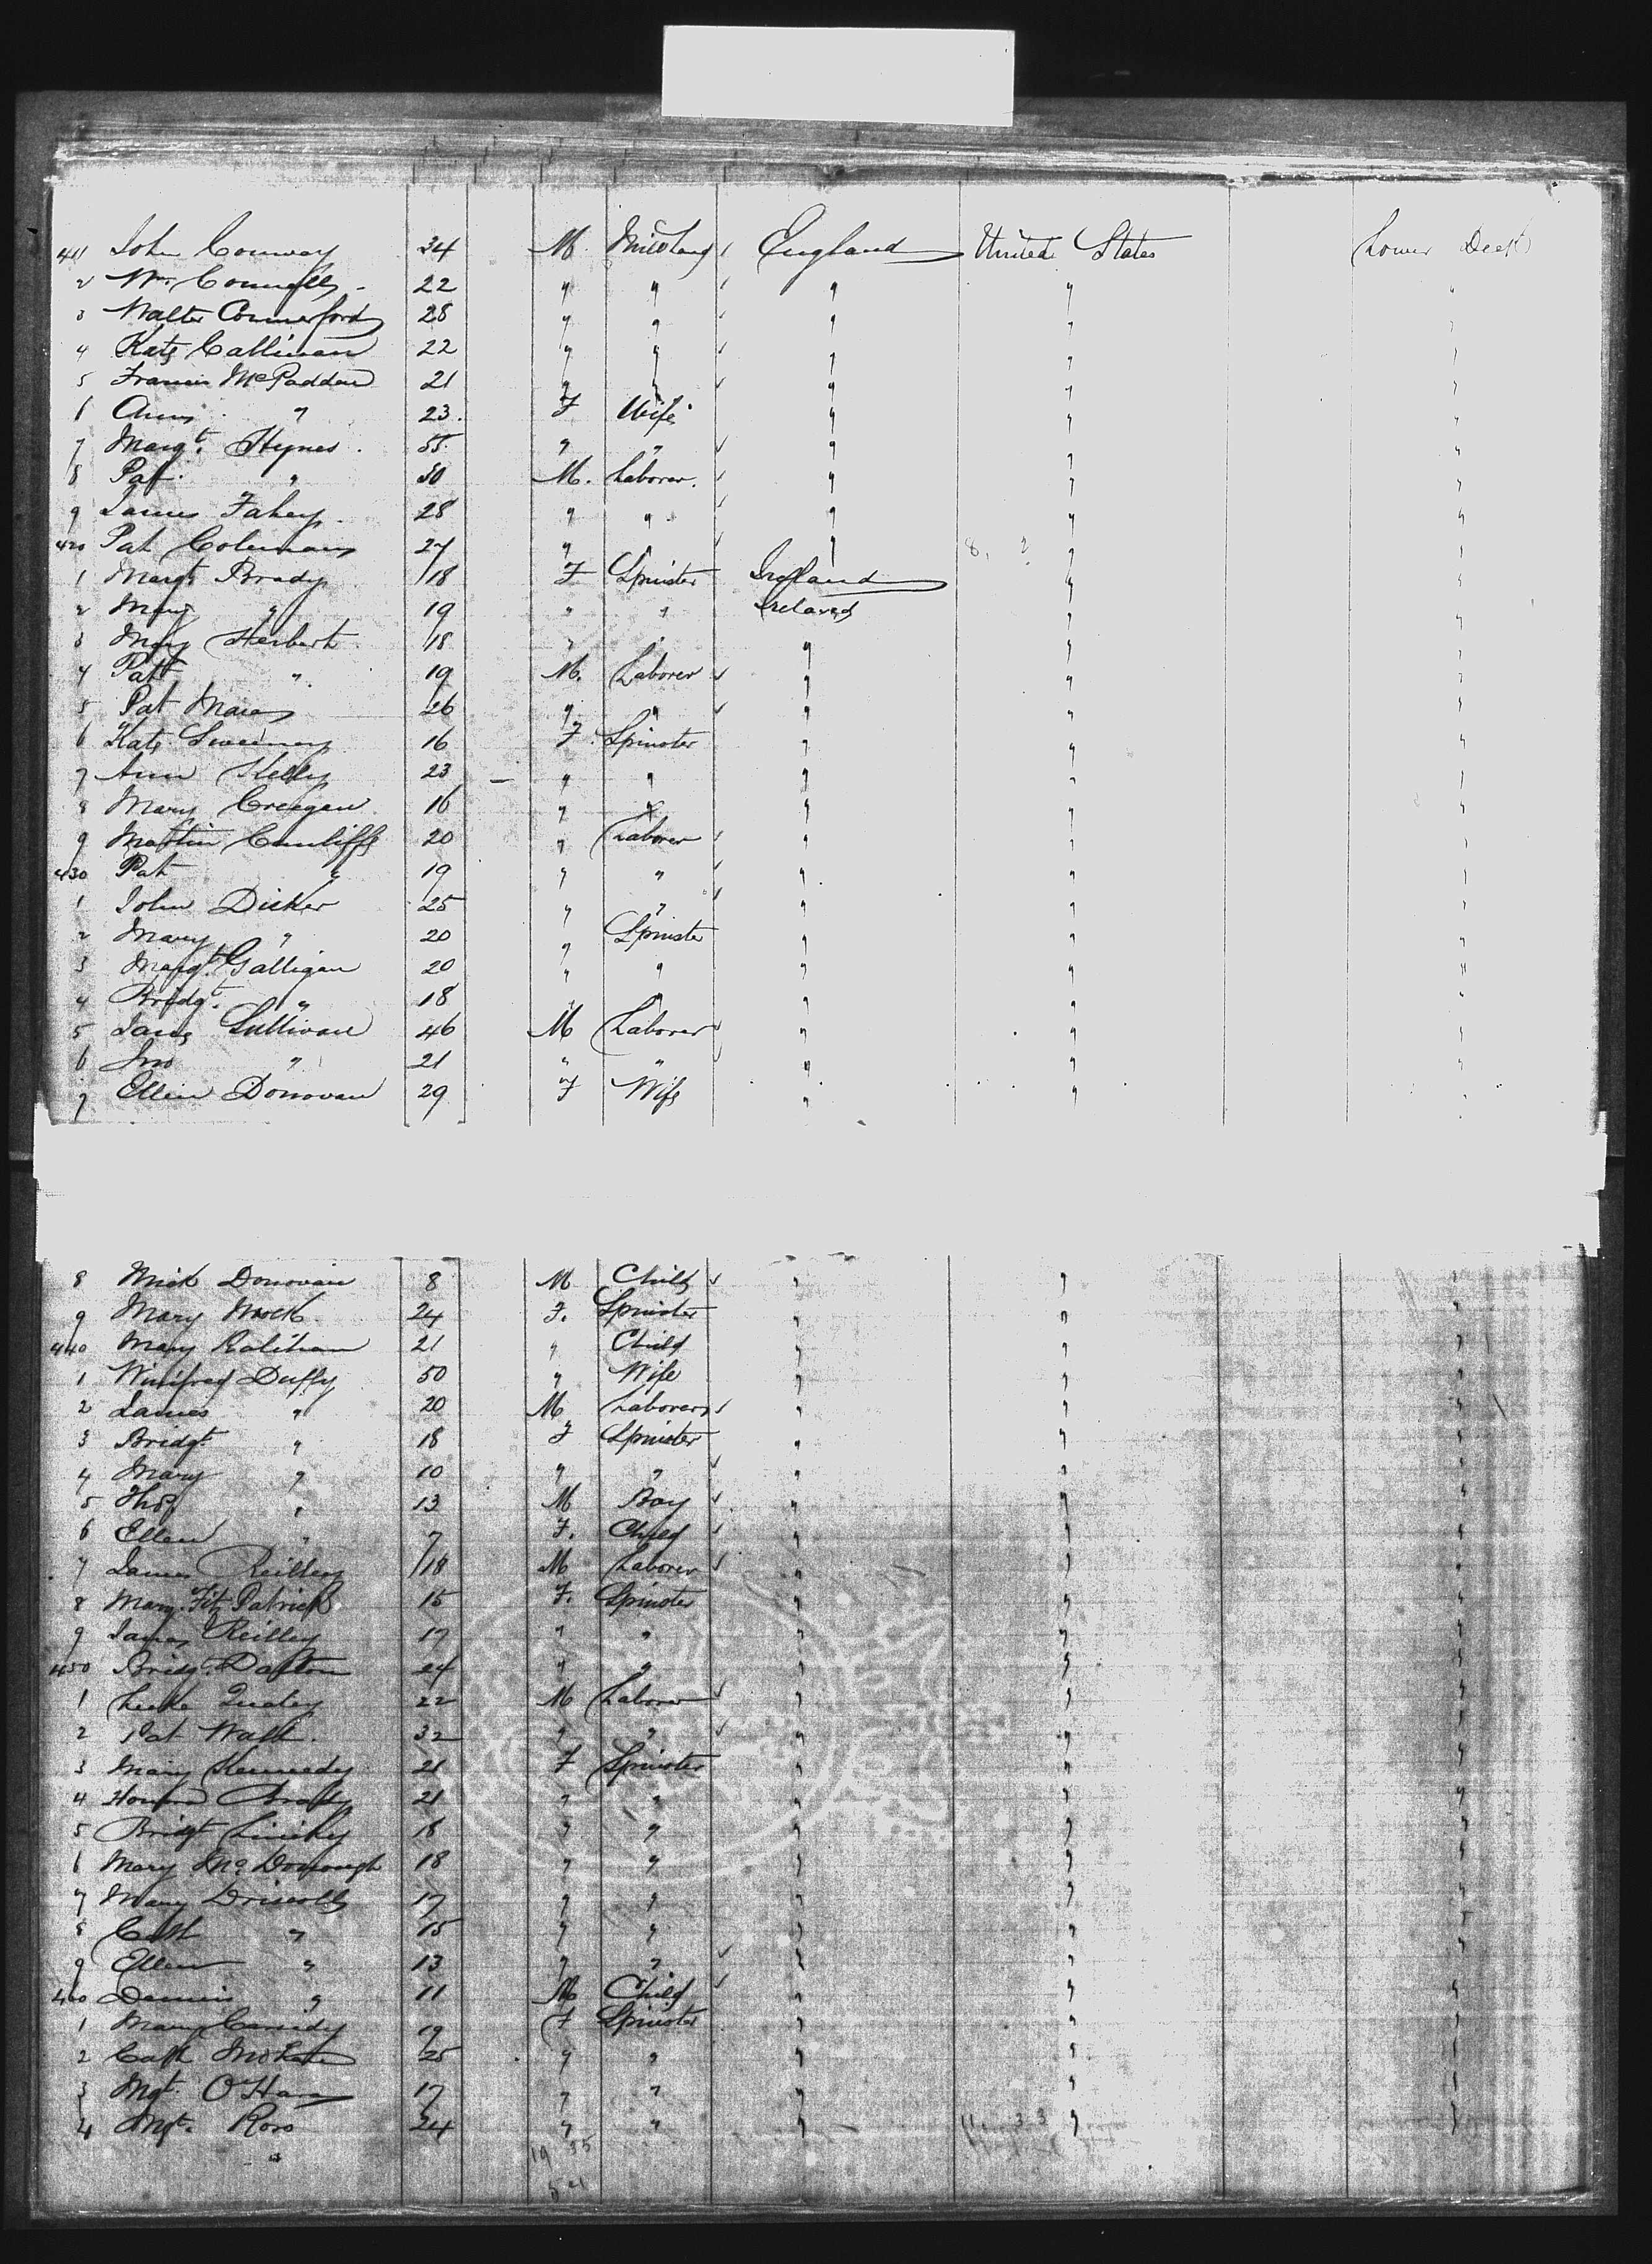 411 John Conway 34 M England United States Lower Deck
2 Wm Connolly 22 " " " " "
3 Walter Comerford 28 " " " " "
4 Kate Callinan 22 " " " " "
5 Francis McPadden 21 " " " " "
6 " 23 F Wife " " "
7 Margt. Hynes 55 " " " " "
8 Pat " 50 M. Laborer " " "
9 James Fahey 28 " " " " "
420 Pat Coleman 27 " " " " "
1 Margt Brady 18 F Spinster " "
2 Mary " 19 " " Ireland " "
3 Mary Herbert 18 " " " " "
4 Patt " 19 M. Laborer " " "
5 Pat 26 " " " " "
6 Kate Sweeney 16 F. Spinster " " "
7 Ann Kelly 23 " " " " "
8 Mary Creegan 16 " " " " "
9 Martin Cunliffe 20 " Laborer " " "
430 Pat " 19 " " " " "
1 John Dicker 25 " " " " "
2 Mary " 20 " Spinster " " "
3 Margt. Galligan 20 " " " " "
4 Bridgt. " 18 " " " " "
5 Sullivan 46 M Laborer " " "
6 Jno " 21 " " " " "
7 Ellen Donovan 29 F Wife " " "
8 Mick Donovan 8 M Child " " "
9 Mary 24 F. Spinster " " "
440 Mary 21 " Child " " "
1 Winifred Duffy 50 " Wife " " "
2 James " 20 M Laborer " " "
3 Bridgt " 18 F Spinster " " "
4 Mary " 10 " " " " "
5 Thos " 13 M Boy " " "
6 Ellen " 7 F. Child " " "
7 James Reilley 18 M Laborer " " "
8 Mary Fitz Patrick 15 F. Spinster " " "
9 Reilley 17 " " " " "
450 Bridgt. Dalton 24 " " " " "
1 Luke 22 M Laborer " " "
2 Pat Walk. 32 " " " " "
3 Mary Kennedy 21 F Spinster " " "
4 21 " " " " "
5 Bridgt 18 " " " " "
6 Mary McDonough 18 " " " " "
7 Mary Driscoll 17 " " " " "
8 Cath " 15 " " " " "
9 Ellen " 13 " " " " "
460 Dennis " 11 M Child " " "
1 Mary 19 F Spinster " " "
2 Cath 25 " " " " "
3 Mgt. O'Hara 17 " " " " "
4 Mgt. Ross 24 " " " " "